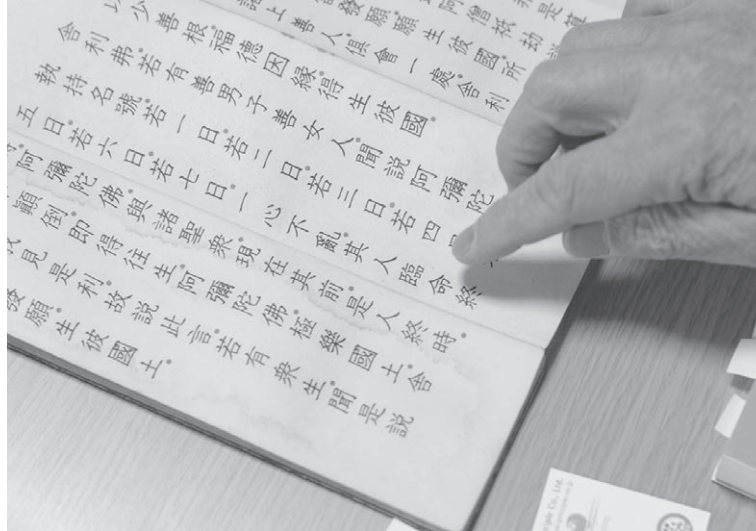 是算
阿僧祇劫
發願願生彼國所
諸上善人俱會一處舍利
以少善根福德因緣得生彼國。
舍利弗若有善男子善女人聞說阿彌陀
執持名號。若一日。若二日。若三日。若四
五日。若六日。若七日。一心不亂。其人臨命終
阿彌陀佛。與諸聖衆。現在其前。是人終時。
顛倒。即得往生。阿彌陀佛。極樂國土。舍
我見是利。故說此言。若有衆生。聞是說
發願。生彼國土。
Co., Ltd.